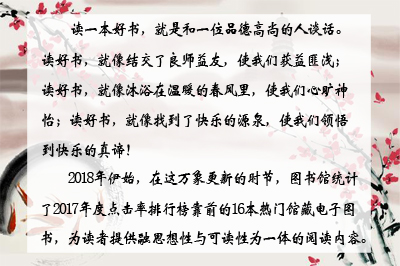 读一本好书，就是和一位品德高尚的人谈话。
读好书，就像结交了良师益友，使我们获益匪浅；
读好书，就像沐浴在温暖的春风里，使我们心旷神
怡；读好书，就像找到了快乐的源泉，使我们领悟
到快乐的真谛！
2018年伊始，在这万象更新的时节，图书馆统计
了2017年度点击率排行榜靠前的16本热门馆藏电子图
书，为读者提供融思想性与可读性为一体的阅读内容。